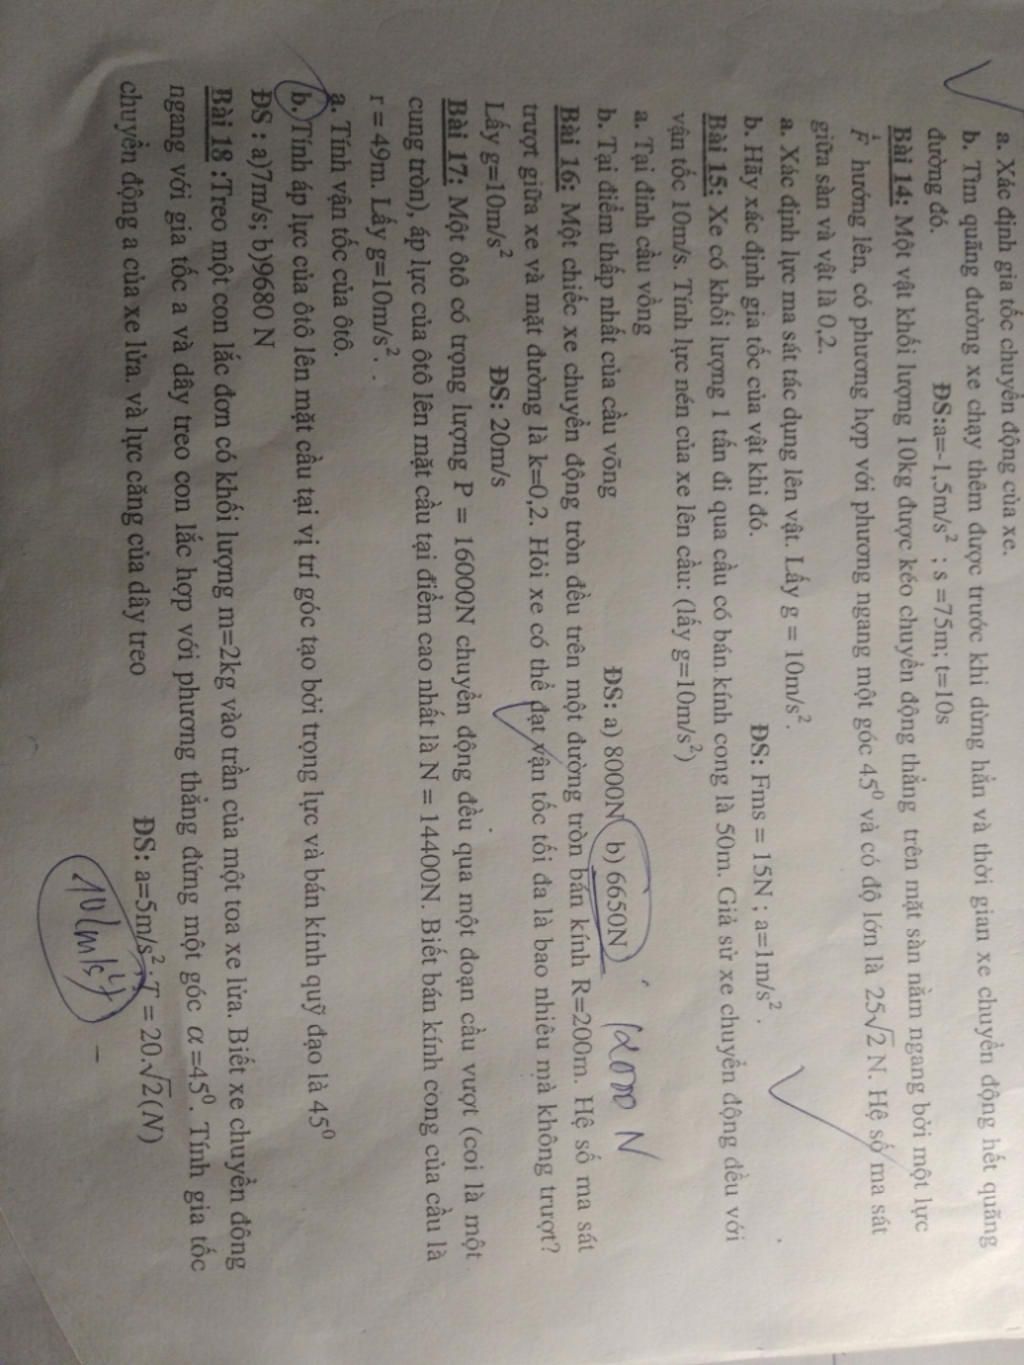 a. Xác định gia tốc chuyển động của xe.
b. Tìm quãng đường xe chạy thêm được trước khi dừng hẳn và thời gian xe chuyển động hết quãng
đường đó. ĐS:a=-1,5m/s² ; s =75m; t=10s
Bài 14: Một vật khối lượng 10kg được kéo chuyển động thẳng trên mặt sàn nằm ngang bởi một lực
F hướng lên, có phương hợp với phương ngang một góc 45⁰ và có độ lớn là 25√2 N. Hệ số ma sát
giữa sàn và vật là 0,2.
a. Xác định lực ma sát tác dụng lên vật. Lấy g = 10m/s².
b. Hãy xác định gia tốc của vật khi đó. ĐS: Fms = 15N ; a=1m/s² .
Bài 15: Xe có khối lượng 1 tấn đi qua cầu có bán kính cong là 50m. Giả sử xe chuyển động đều với
vận tốc 10m/s. Tính lực nén của xe lên cầu: (lấy g=10m/s²)
a. Tại đỉnh cầu vồng
b. Tại điểm thấp nhất của cầu võng ĐS: a) 8000N b) 6650N 12000 N
Bài 16: Một chiếc xe chuyển động tròn đều trên một đường tròn bán kính R=200m. Hệ số ma sát
trượt giữa xe và mặt đường là k=0,2. Hỏi xe có thể đạt vận tốc tối đa là bao nhiêu mà không trượt?
Lấy g=10m/s² ĐS: 20m/s
Bài 17: Một ôtô có trọng lượng P = 16000N chuyển động đều qua một đoạn cầu vượt (coi là một
cung tròn), áp lực của ôtô lên mặt cầu tại điểm cao nhất là N = 14400N. Biết bán kính cong của cầu là
r = 49m. Lấy g=10m/s² .
a. Tính vận tốc của ôtô.
b. Tính áp lực của ôtô lên mặt cầu tại vị trí góc tạo bởi trọng lực và bán kính quỹ đạo là 45⁰
ĐS : a)7m/s; b)9680 N
Bài 18 :Treo một con lắc đơn có khối lượng m=2kg vào trần của một toa xe lửa. Biết xe chuyển đông
ngang với gia tốc a và dây treo con lắc hợp với phương thẳng đứng một góc α =45⁰. Tính gia tốc
chuyển động a của xe lửa. và lực căng của dây treo ĐS: a=5m/s²; T = 20.√2(N)
10 (m/s²)